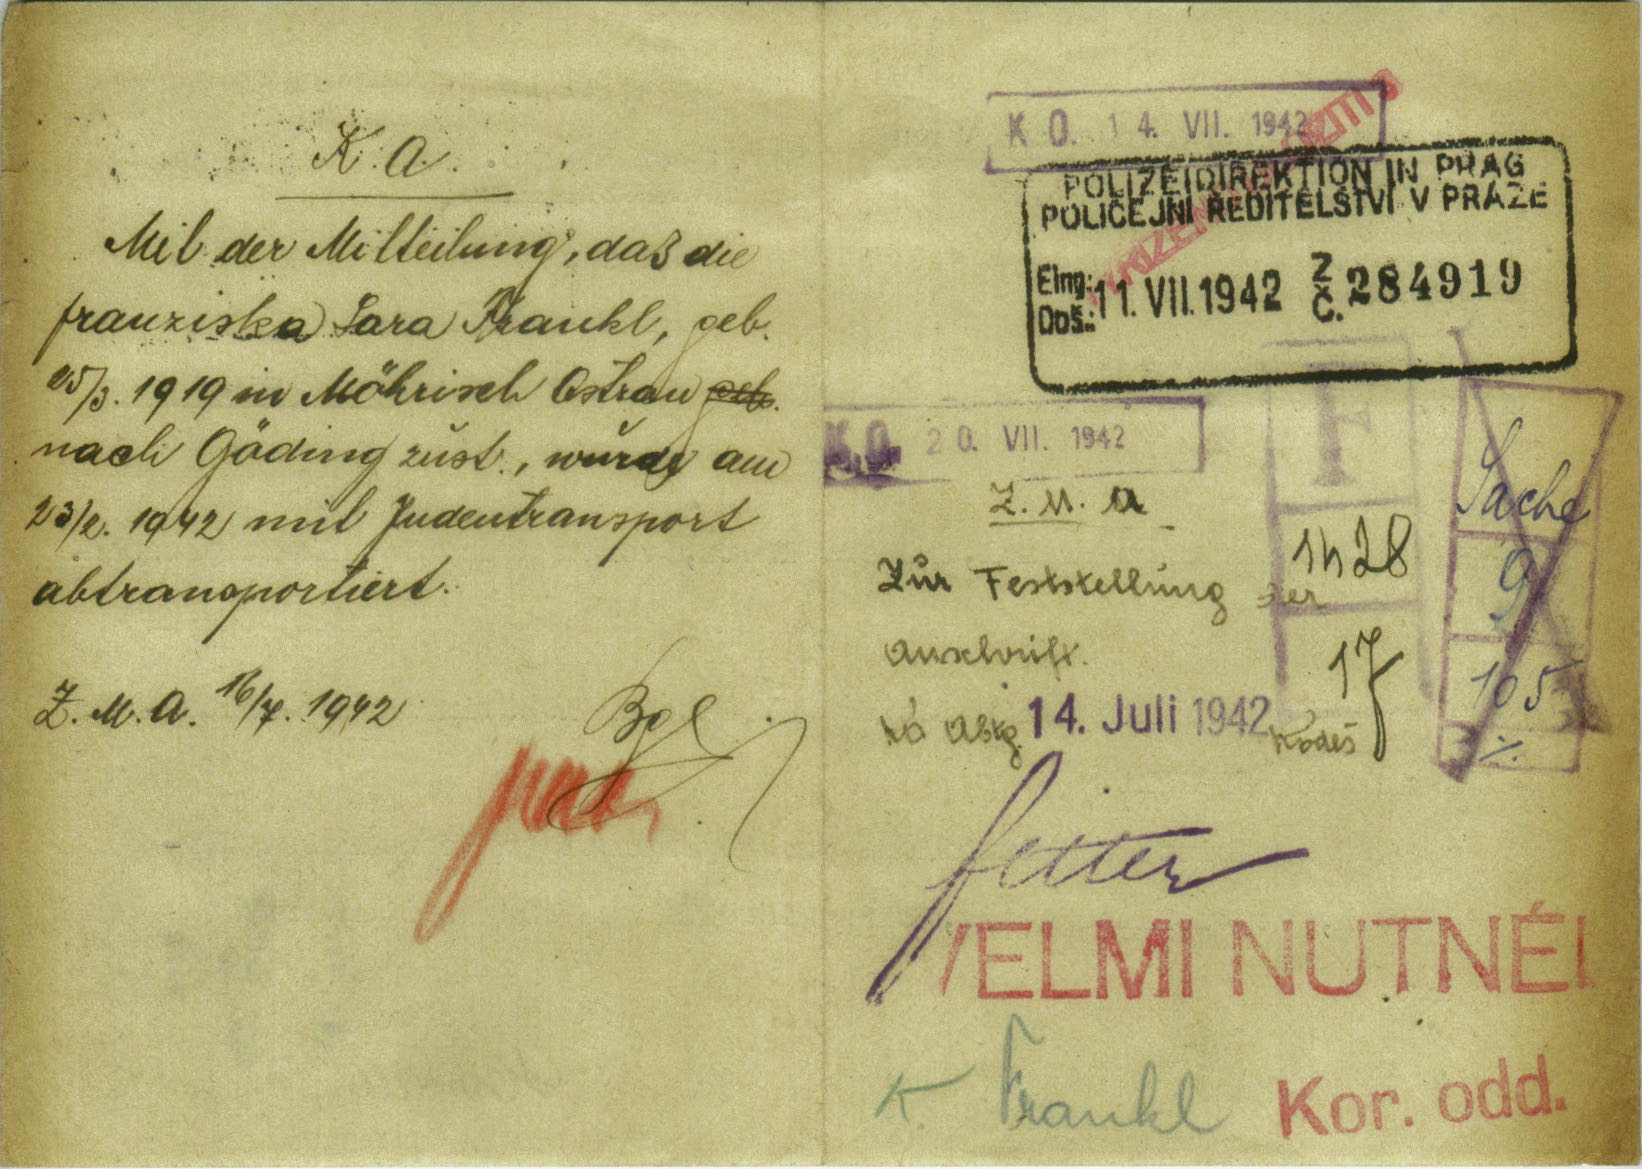 K. A.
Mit der Mitteilung, daß die
Franziska Sara Frankl, geb.
25/3. 1919 in Möhrisch Ostrau geb.
nach Göding zust., wurde am
23/2. 1942 mit Judentransport
abtransportiert.
Z. M. A. 16/7. 1942
K O. 14. VII. 1942
POLIZEIDIREKTION IN PRAG
POLICEJNÍ ŘEDITELSTVÍ V PRAZE
Eing.:
Doš.:
11. VII. 1942
Z
Č. 284919
K.O. 20. VII. 1942
F
Z. M. A
Zur Feststellung der
Anschrift.
14. Juli 1942
1428
17
Sache
9
105
VELMI NUTNÉ!
K. Frankl
Kor. odd.